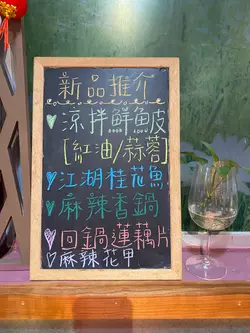 新品推介
涼拌鮮鮑皮
[紅油/蒜蓉]
江湖桂花魚
麻辣香鍋
回鍋蓮藕片
麻辣花甲